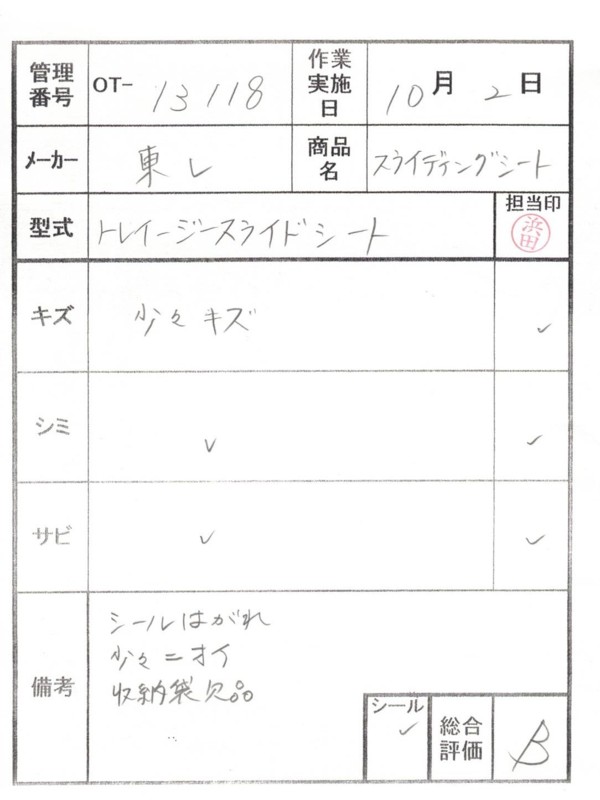 管理番号 OT- 13118 作業実施日 10月2日
メーカー 東レ 商品名 スライディングシート
型式 トレイージースライドシート 担当印 浜田
キズ 少々キズ ✓
シミ ✓ ✓
サビ ✓ ✓
備考 シールはがれ
少々ニオイ
収納袋欠品
シール ✓ 総合評価 B